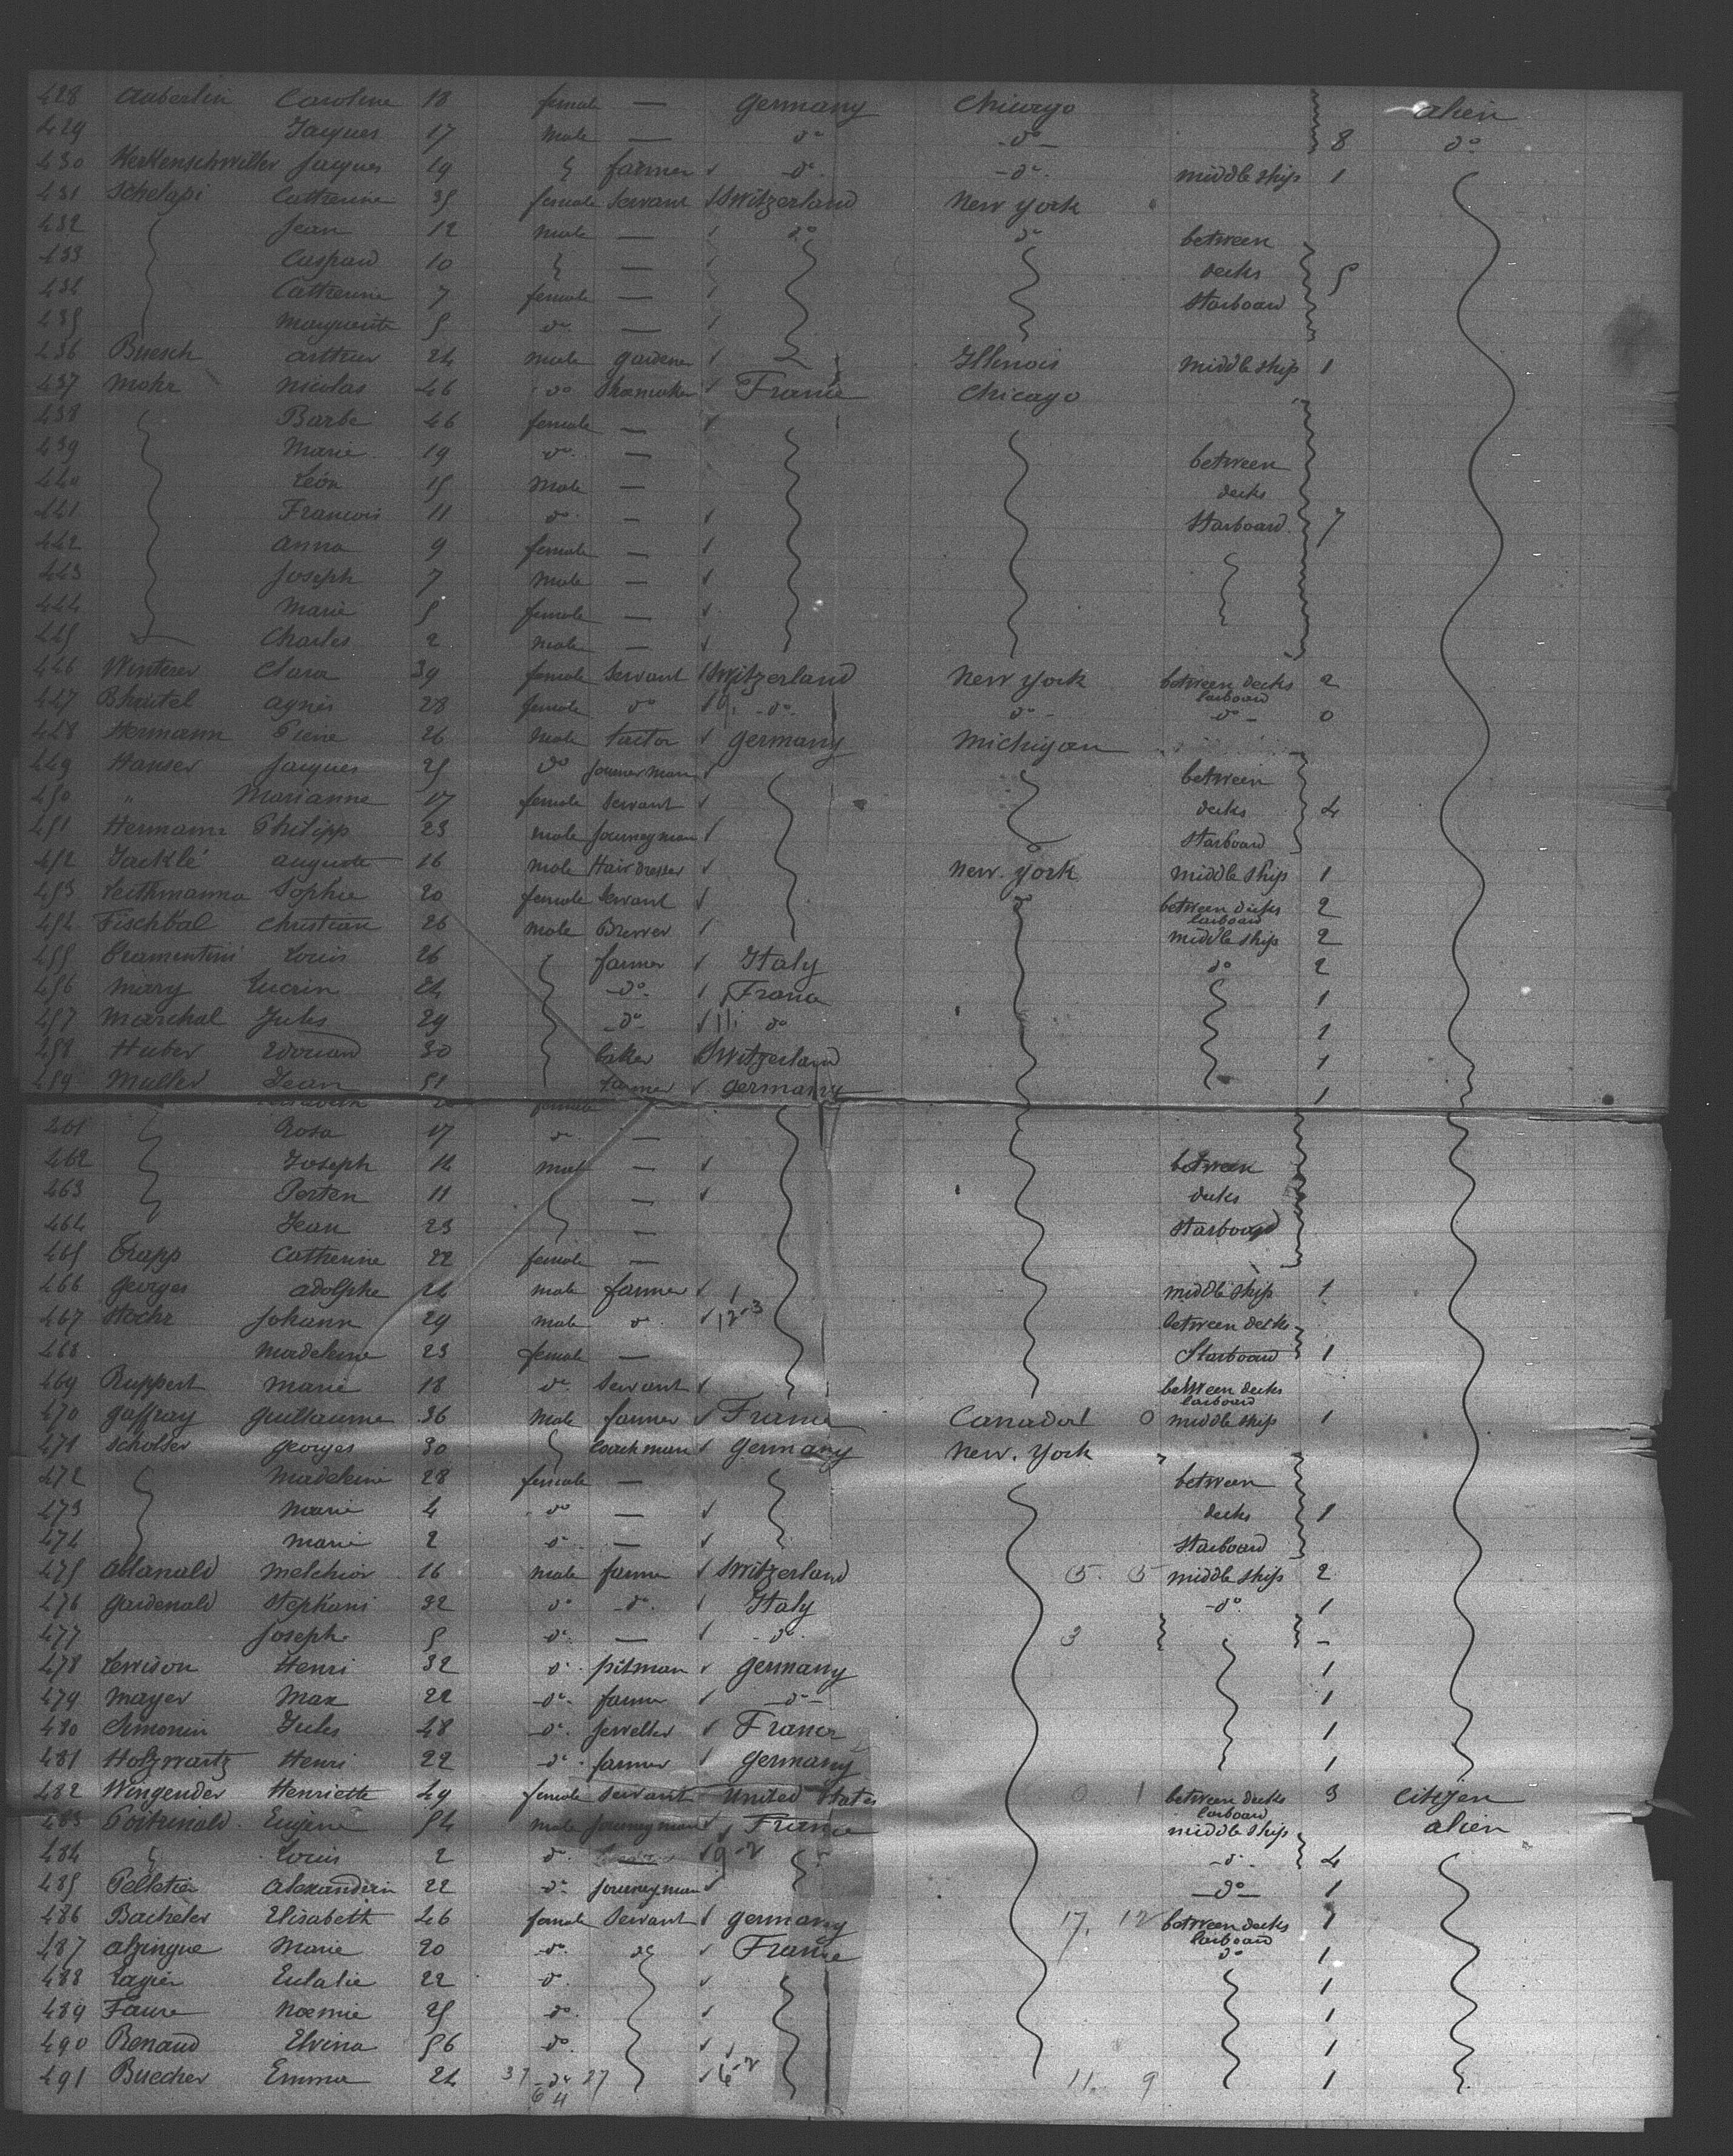 428 Auberlin Caroline 18 female — Germany Chicago alien
429 Jacques 17 male — do -do- 8 do
430 Herkenschwiller Jacques 19 farmer -do- -do- middle ship 1
431 Schelapi Catherine 35 female servant Switzerland New York
432 Jean 12 male — do do between
433 Caspard 10 — decks 5
434 Catherine 7 female — starboard
435 Marguerite 5 do —
436 Buesch Arthur 24 male gardener Illinois middle ship 1
437 Mohr Nicolas 46 do Shoemaker France Chicago
438 Barbe 46 female —
439 Marie 19 do — between
440 Léon 15 male — decks
441 Francois 11 do — starboard 7
442 Anna 9 female —
443 Joseph 7 male —
444 Marie 5 female —
445 Charles 2 male —
446 Winterer Clara 39 female servant Switzerland New York between decks larboard 2
447 Agnes 28 female do -do- do - -do- 0
448 Hermann Pierre 26 male Germany Michigan
449 Hanser Jacques 25 do between
450 " Marianne 17 female servant decks 4
451 Hermann Philipp 23 male Journeyman starboard
452 Jacklé Auguste 16 male Hair dresser New. York middle ship 1
453 Sophie 20 female servant do between decks larboard 2
454 Fischbal Christian 26 male Brewer middle ship 2
455 Cramentini Louis 26 farmer Italy do 2
456 Mary Lucien 24 -do- France 1
457 Marchal Jules 29 -do- do 1
458 Huber Edouard 30 baker Switzerland 1
459 Muller Jean 51 farmer Germany 1
female
461 Rosa 17 do —
462 Joseph 14 male — between
463 11 — decks
464 Jean 23 — starboard
465 Trapp Catherine 22 female —
466 Georges Adolphe 24 male farmer middle ship 1
467 Stochr Johann 29 male do 12-3 between decks
468 Madeleine 23 female — Starboard 1
469 Ruppert Marie 18 do servant between decks larboard
470 Gaffray Guillaume 36 male farmer France 0 middle ship 1
471 Scholser Georges 30 coachman Germany New. York
472 Madeleine 28 female — between
473 Marie 4 do — decks 1
474 Marie 2 do — starboard
475 Abanald Melchior 16 male farmer Switzerland 5. 5 middle ship 2
476 Gardenald Stephani 32 do -do- Italy -do- 1
477 Joseph 5 do — -do- 3 —
478 Lewison Henri 32 do pitman Germany 1
479 Mayer Max 22 -do- farmer -do- 1
480 Simonin Jules 48 -do- jeweller France 1
481 Holzwartz Henri 22 -do- farmer Germany 1
482 Wingender Henriette 49 female servant United States 0 1 between decks larboard 3 Citizen
483 Eugène 54 male Journeyman France middle ship alien
484 Louis 2 do 9-2 -do- 4
485 Pelletier Alexandrin 22 -do- journeyman -do- 1
486 Bacheler Elisabeth 46 female servant Germany 17. 12 between decks larboard 1
487 Alzingue Marie 20 -do- do France do 1
488 Lagier Eulalie 22 do 1
489 Faure Noemie 25 do 1
490 Renaud Elvina 56 do 1
491 Buecher Emma 24 37 -do- 27 6-2 11. 9 1
6 4